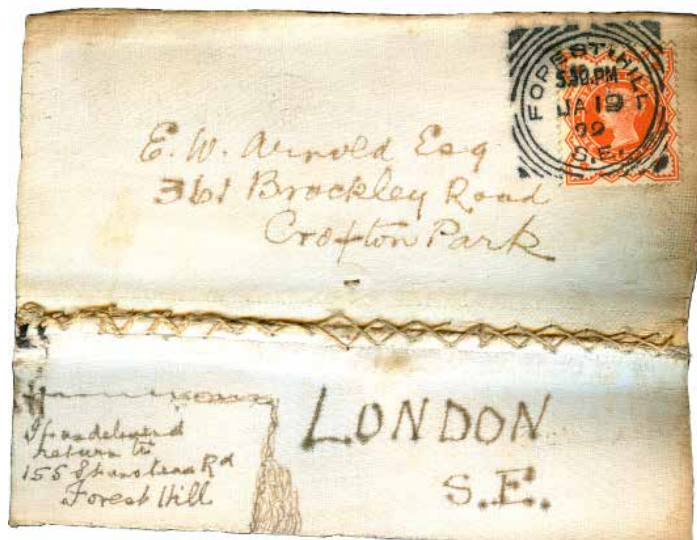 FOREST HILL
5.30.PM
JA 19
99
S.E.
E. W. Arnold Esq
361 Brockley Road
Crofton Park
LONDON
S.E.
If undelivered
return to
155 Stanstead Rd
Forest Hill